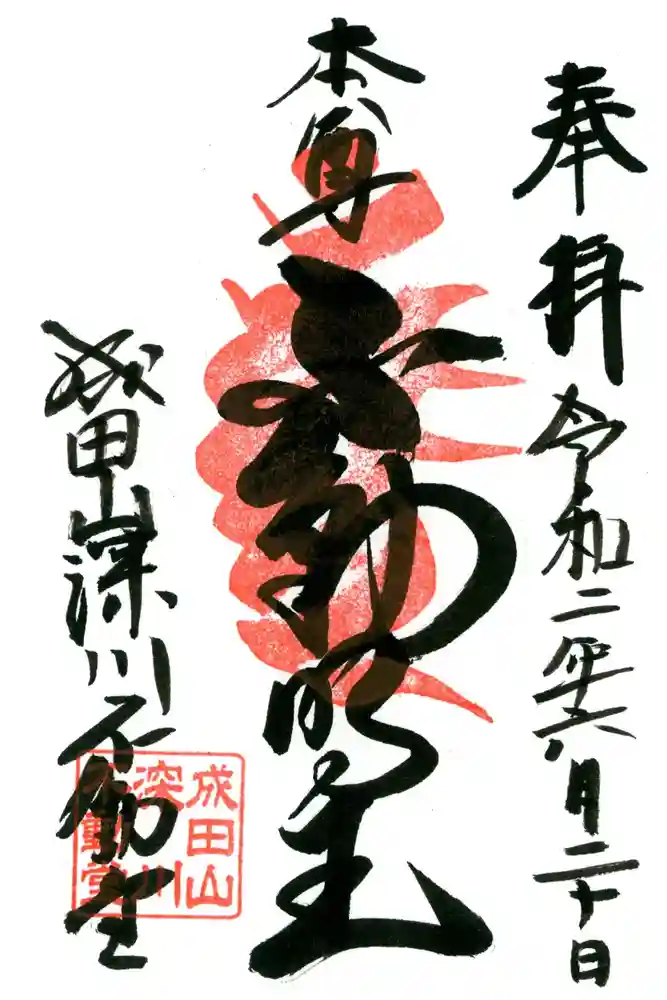 奉拝 令和二年六月二十日
本尊 不動明王
成田山深川不動堂
成田山
深川
不動堂